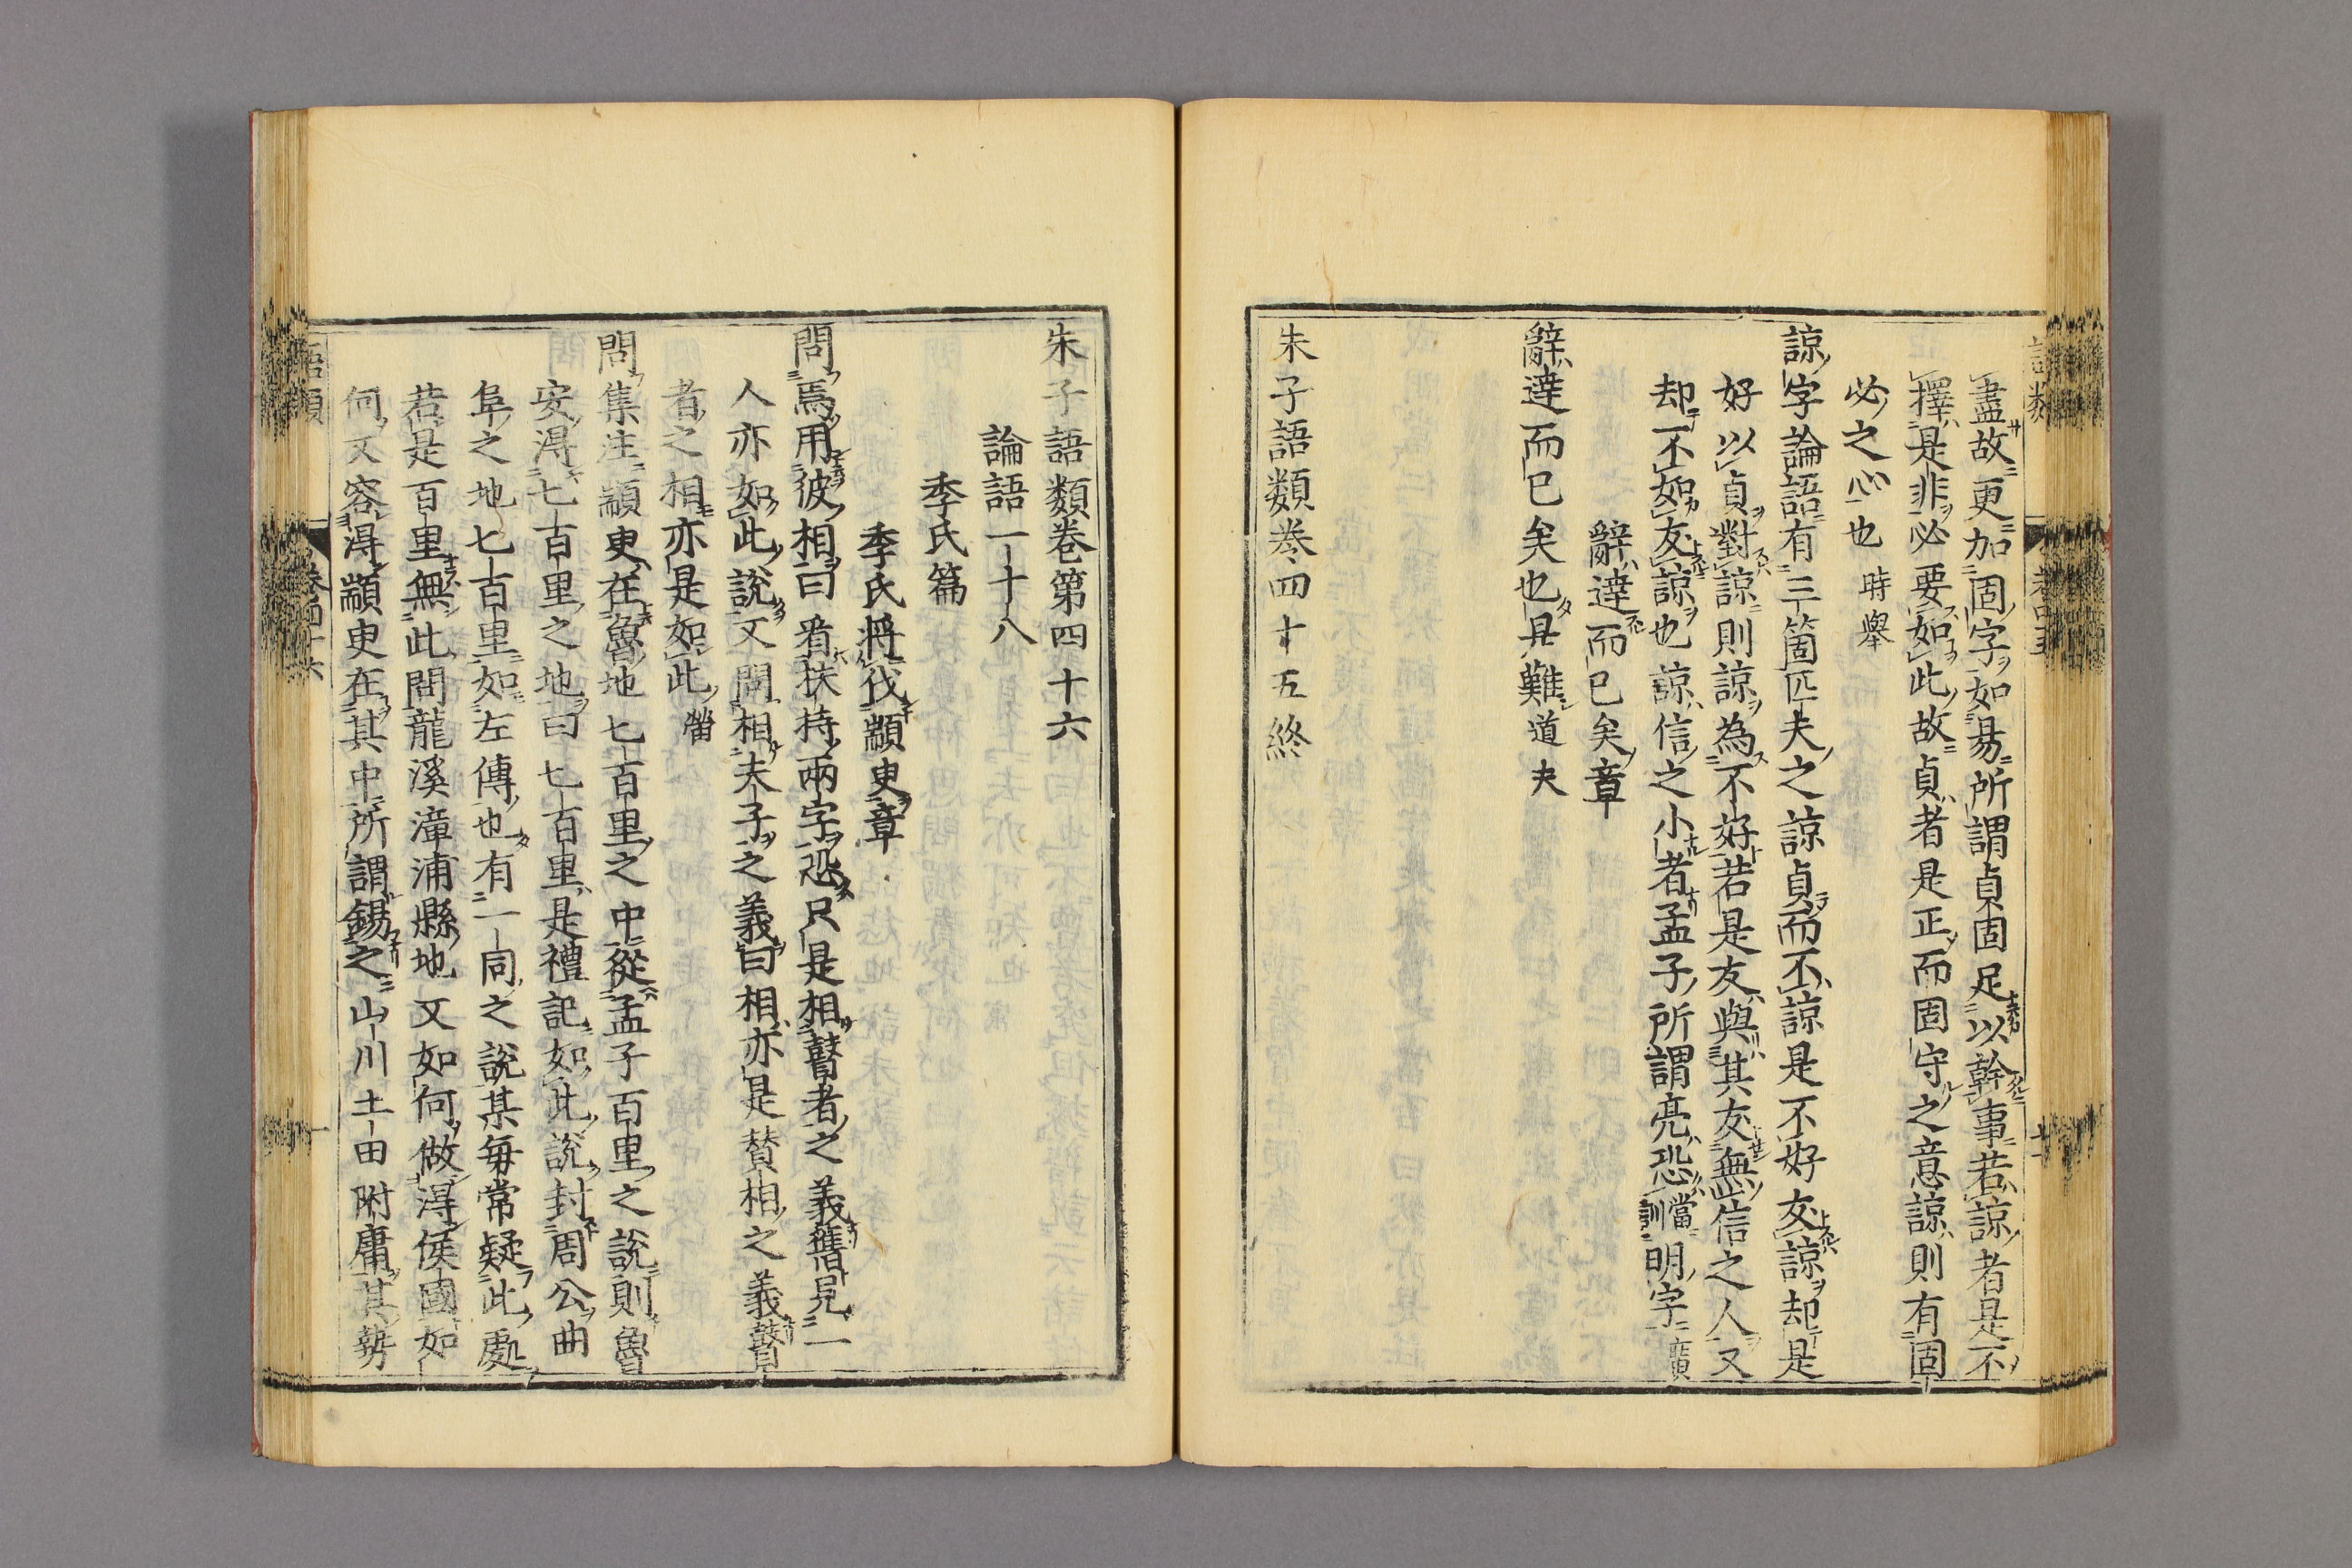 盡故更加固字如易所謂貞固足以幹事若諒者是不
擇是非必要如此故貞者是正而固守之意諒則有固
必之心也 時舉
諒字論語有三箇匹夫之諒貞而不諒是不好友諒却是
好以貞對諒則諒為不好若是友與其友無信之人又
却不如友諒也諒信之小者孟子所謂亮恐當訓明字 廣
辭達而已矣章
辭達而已矣也是難 道夫
朱子語類卷四十五終
朱子語類卷第四十六
論語二十八
季氏篇
季氏將伐顓臾章
問焉用彼相曰看扶持兩字恐只是相瞽者之義舊見一
人亦如此說又問相夫子之義曰相亦是贊相之義瞽
者之相亦是如此 㽦
問集注顓臾在魯地七百里之中從孟子百里之說則魯
安淂七百里之地曰七百里是禮記如此說封周公曲
阜之地七百里如左傳也有一同之說某每常疑此處
若是百里無此間龍溪漳浦縣地又如何做淂侯國如
何又容淂顓臾在其中所謂錫之山川土田附庸其勢